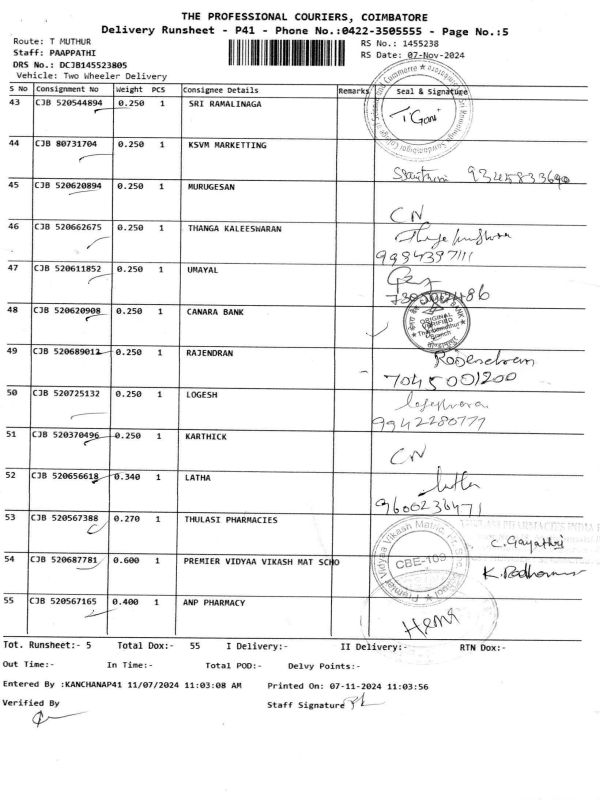 THE PROFESSIONAL COURIERS, COIMBATORE
Delivery Runsheet - P41 - Phone No.:0422-3505555 - Page No.:5
Route: T MUTHUR RS No.: 1455238
Staff: PAAPPATHI RS Date: 07-Nov-2024
DRS No.: DCJB145523805
Vehicle: Two Wheeler Delivery
S No Consignment No Weight PCS Consignee Details Remarks Seal & Signature
43 CJB 520544894 0.250 1 SRI RAMALINAGA T Gani
44 CJB 80731704 0.250 1 KSVM MARKETTING
9345833690
45 CJB 520620894 0.250 1 MURUGESAN
CN
46 CJB 520662675 0.250 1 THANGA KALEESWARAN
9994397111
47 CJB 520611852 0.250 1 UMAYAL
48 CJB 520620908 0.250 1 CANARA BANK
ORIGINAL VERIFIED
Branch
49 CJB 520689012 0.250 1 RAJENDRAN
Rajendran
7045001200
50 CJB 520725132 0.250 1 LOGESH
9942280777
51 CJB 520370496 0.250 1 KARTHICK
CN
52 CJB 520656618 0.340 1 LATHA
latha
9600236471
53 CJB 520567388 0.270 1 THULASI PHARMACIES
C. Gayathri
54 CJB 520687781 0.600 1 PREMIER VIDYAA VIKASH MAT SCHO
CBE-109
55 CJB 520567165 0.400 1 ANP PHARMACY
Hema
Tot. Runsheet:- 5 Total Dox:- 55 I Delivery:- II Delivery:- RTN Dox:-
Out Time:- In Time:- Total POD:- Delvy Points:-
Entered By :KANCHANAP41 11/07/2024 11:03:08 AM Printed On: 07-11-2024 11:03:56
Verified By Staff Signature